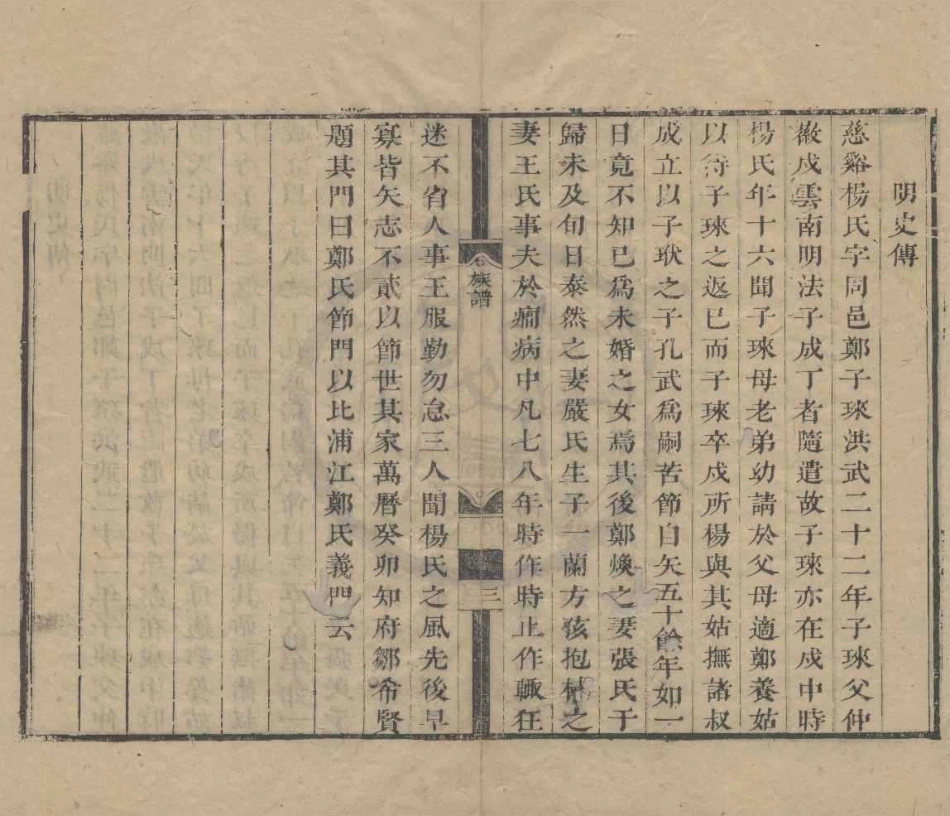 明史傳
慈谿楊氏字同邑鄭子琜洪武二十二年子琜父仲
徽戍雲南明法子成丁者隨遣故子琜亦在戍中時
楊氏年十六聞子琜母老弟幼請於父母適鄭養姑
以待子琜之返已而子琜卒戍所楊與其姑撫諸叔
成立以子耿之子孔武爲嗣苦節自矢五十餘年如一
日竟不知已爲未婚之女焉其後鄭煥之妻張氏于
歸未及旬日泰然之妻嚴氏生子一蘭方孩抱林之
妻王氏事夫於癎病中凡七八年時作時止作輒狂
族譜
三
迷不省人事王服勤勿怠三人聞楊氏之風先後早
寡皆矢志不貳以節世其家萬曆癸卯知府鄒希賢
題其門曰鄭氏節門以比浦江鄭氏義門云